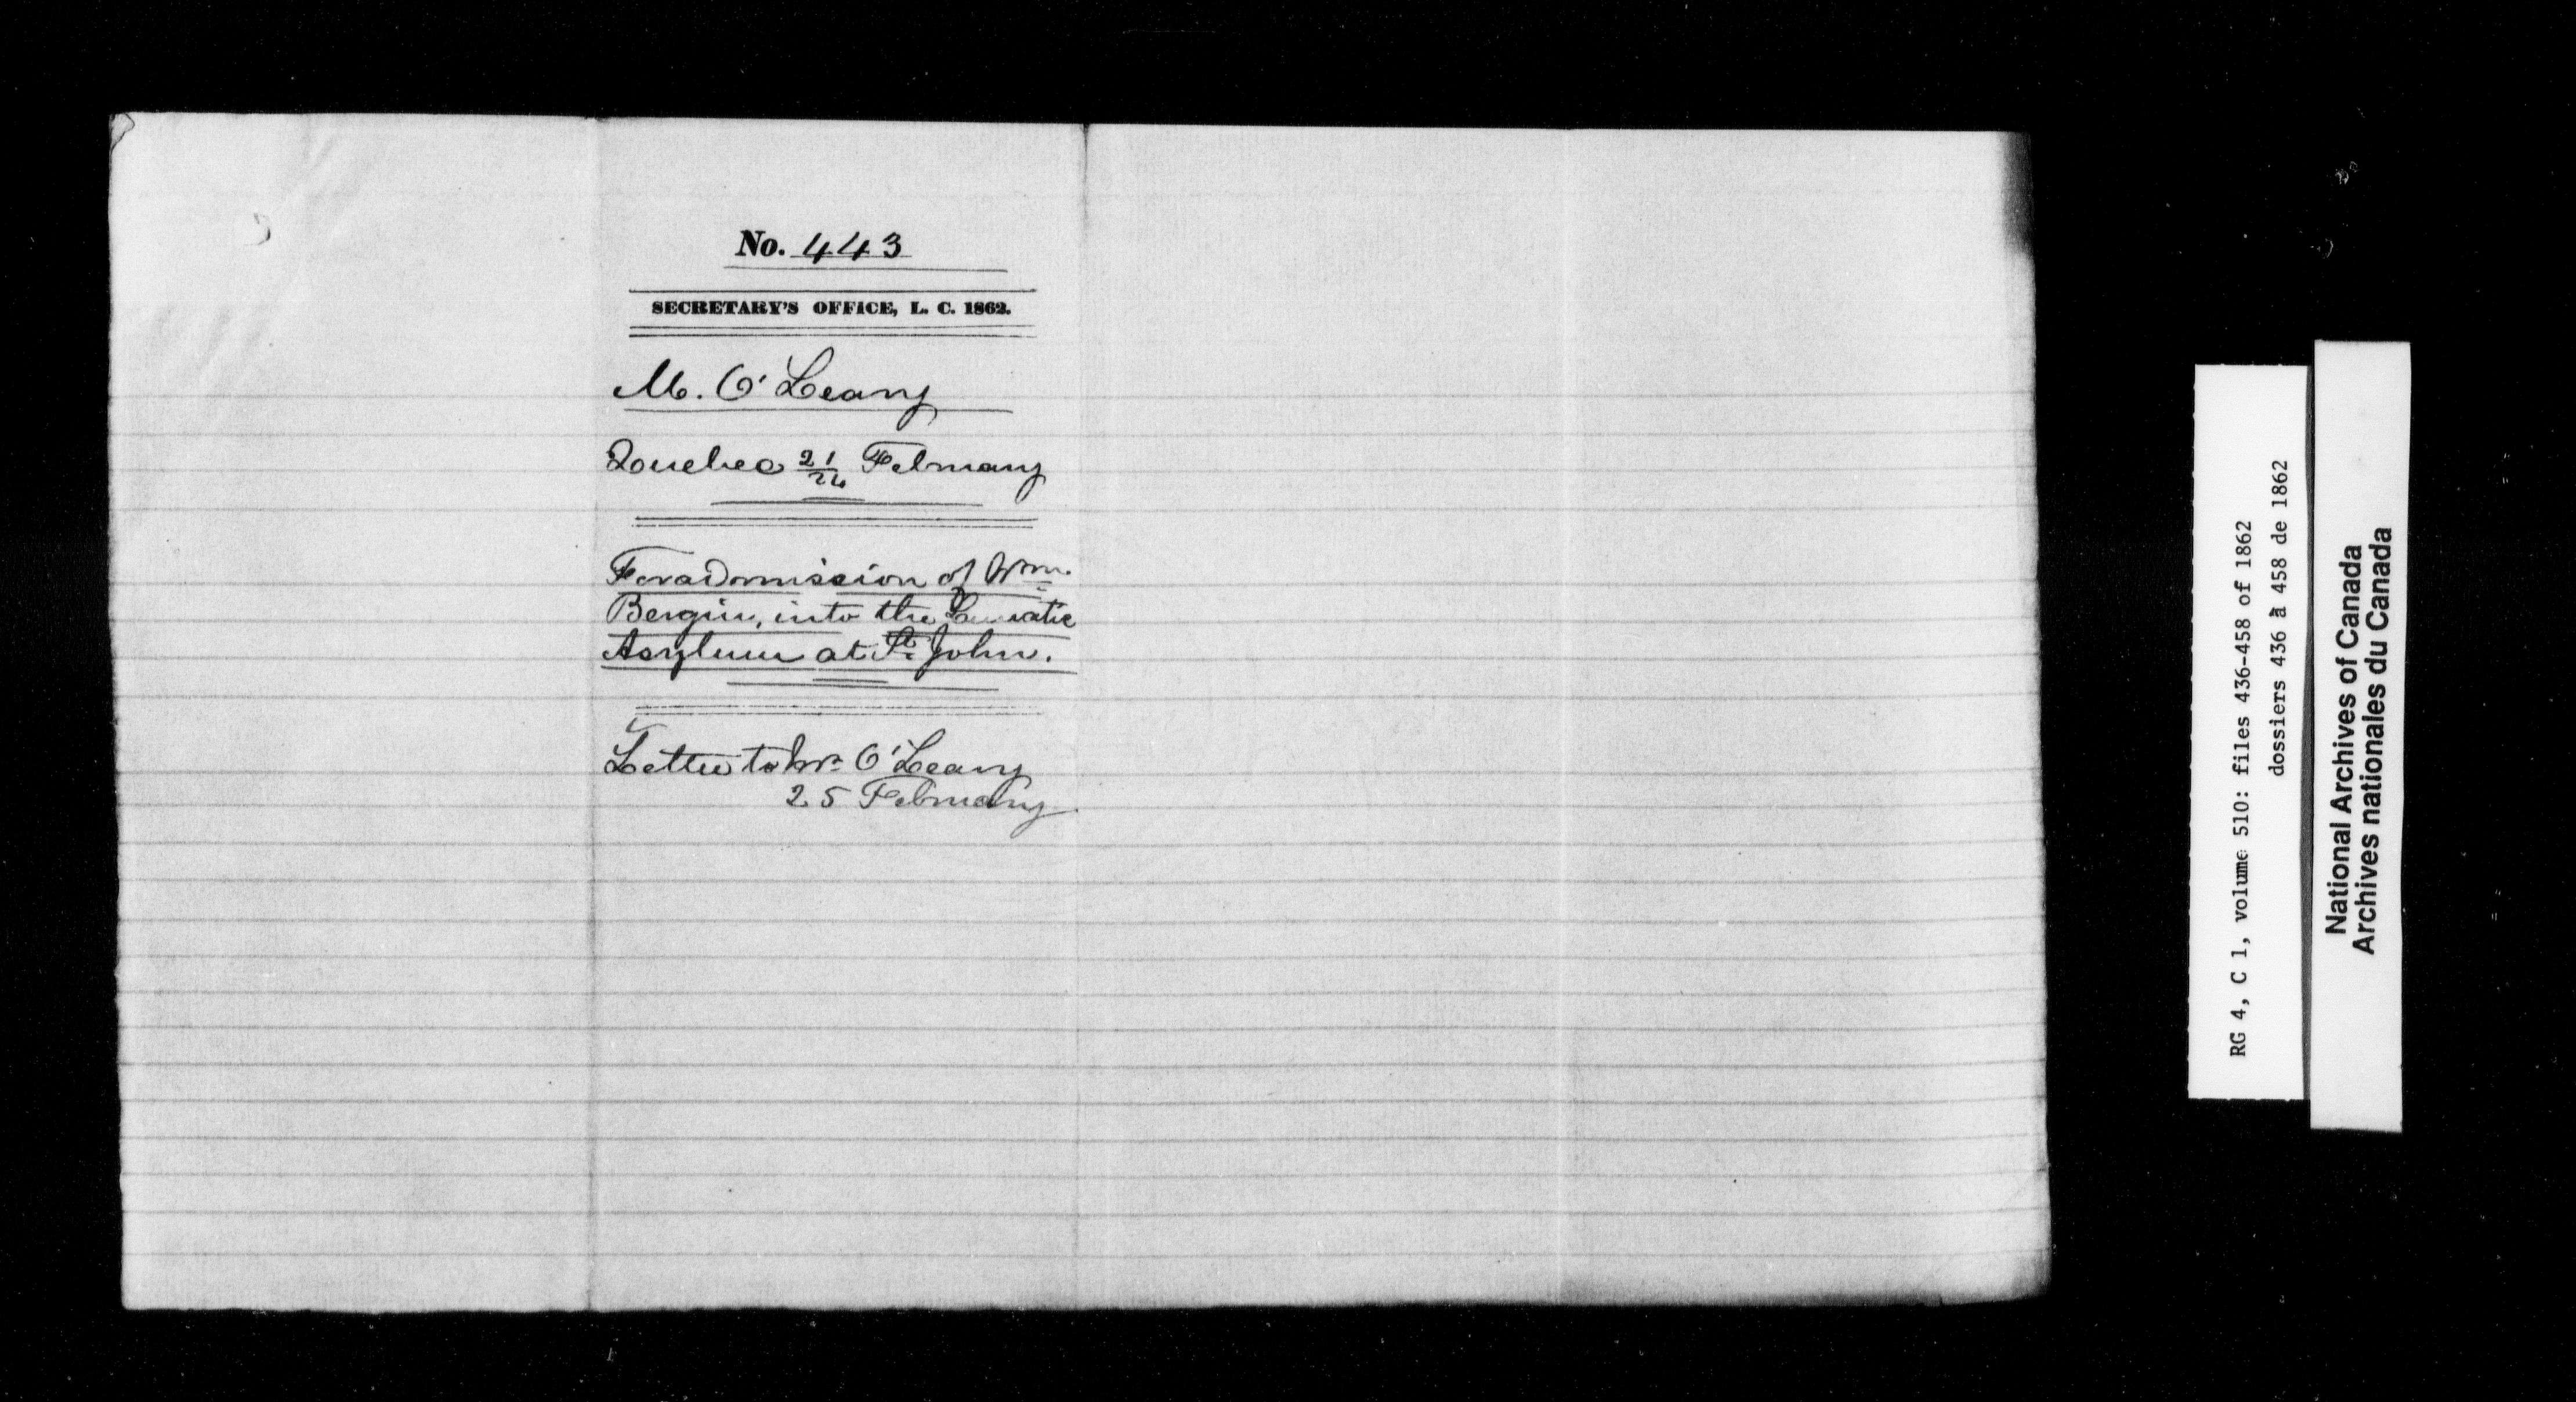 No. 443
SECRETARY'S OFFICE, L. C. 1862.
M. O'Leary
Quebec 21/24 February
For admission of Wm.
Bergin, into the Lunatic
Asylum at St. John.
Letter to Mr. O'Leary
25 February
RG 4, C 1, volume 510: files 436-458 of 1862
dossiers 436 à 458 de 1862
National Archives of Canada
Archives nationales du Canada